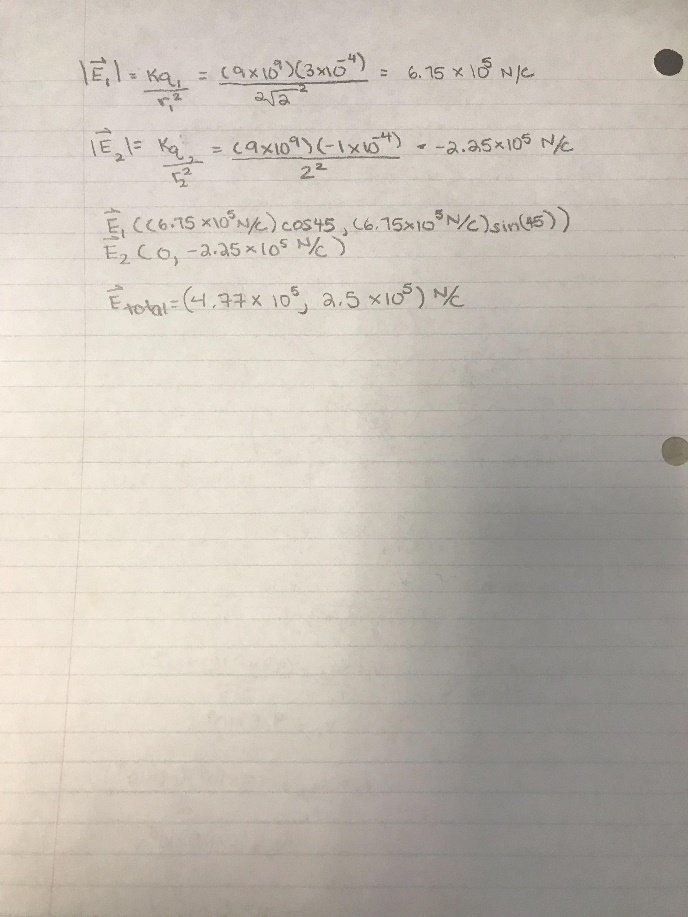 |E⃗₁| = Kq₁/r₁² = (9x10⁹)(3x10⁻⁴)/2√2² = 6.75 x 10⁵ N/C
|E⃗₂| = Kq₂/r₂² = (9x10⁹)(-1x10⁻⁴)/2² = -2.25x10⁵ N/C
E⃗₁ ((6.75 x10⁵N/C) cos45, (6.75x10⁵N/C)sin(45))
E⃗₂ (0, -2.25x10⁵ N/C)
E⃗total = (4.77 x 10⁵, 2.5 x10⁵) N/C